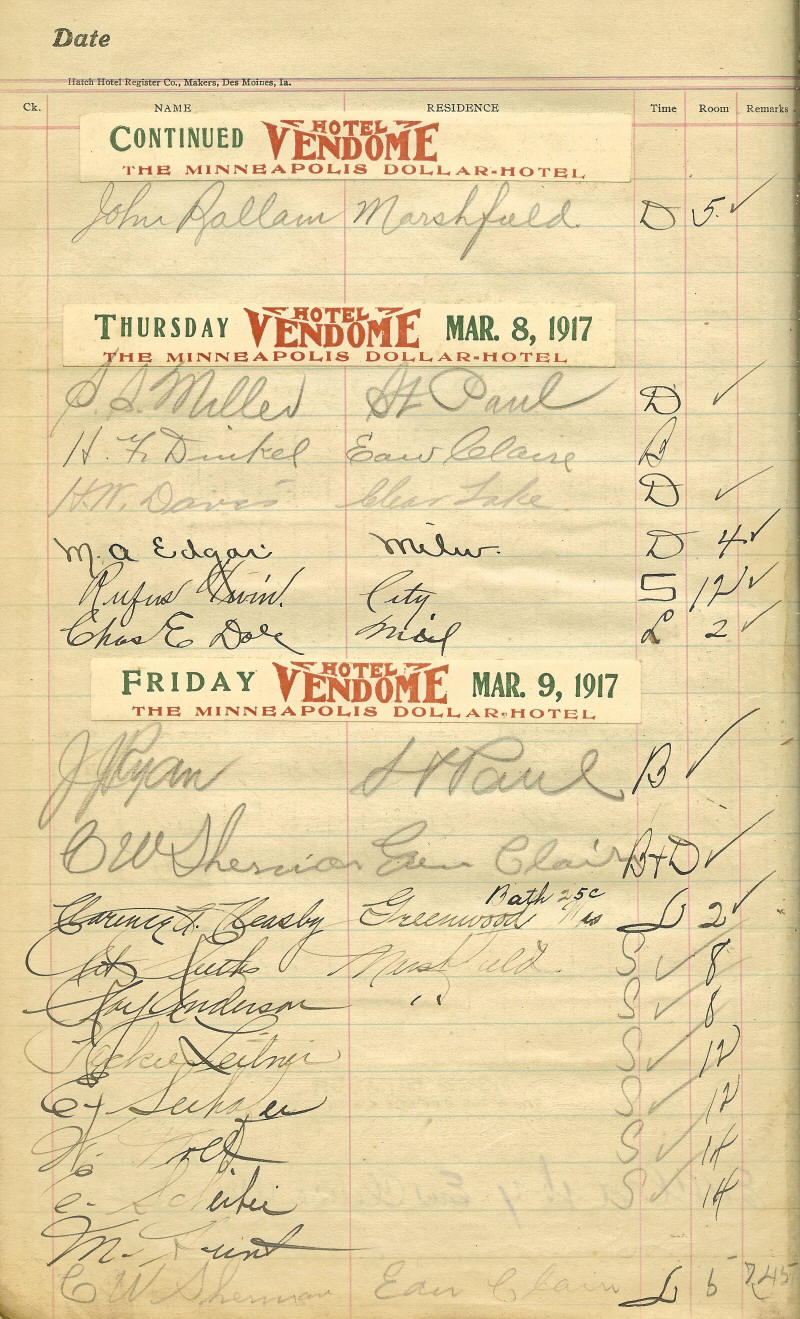 Date
Hatch Hotel Register Co., Makers, Des Moines, Ia.
Ck. NAME RESIDENCE Time Room Remarks
CONTINUED HOTEL VENDOME
THE MINNEAPOLIS DOLLAR-HOTEL
John Rallam Marshfield. D 5. ✓
THURSDAY HOTEL VENDOME MAR. 8, 1917
THE MINNEAPOLIS DOLLAR-HOTEL
S. S. Miller St Paul D ✓
H. F. Dinkel Eau Claire B
H. W. Davis Clear Lake D ✓
M. A Edgar Milw. D 4 ✓
Rufus City S 12 ✓
Chas E Dole L 2 ✓
FRIDAY HOTEL VENDOME MAR. 9, 1917
THE MINNEAPOLIS DOLLAR-HOTEL
J J Ryan St Paul B ✓
C W Sherman Eau Clair B+D ✓
Bath 25c
Clarence Greenwood Wis L 2 ✓
Marshfield. S ✓ 8
Roy Anderson " S ✓ 8
S ✓ 12
S ✓ 12
S ✓ 14
E. S ✓ 14
M.
C W Sherman Eau Clair L 5 7.45